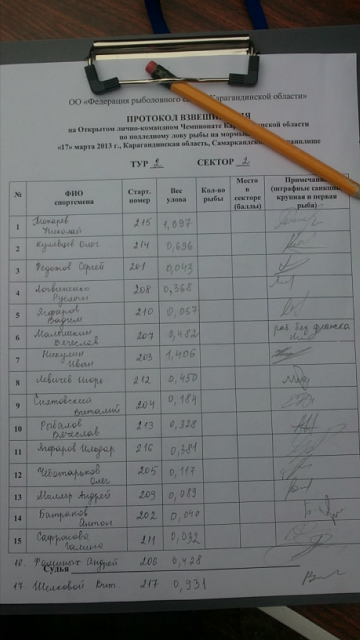 ОО «Федерация рыболовного Карагандинской области»
ПРОТОКОЛ
на Открытом лично-командном Чемпионате области
по подледному лову рыбы на мормы
«17» марта 2013 г., Карагандинская область, Самаркандск
ТУР 2 СЕКТОР 2
№ ФИО спортсмена Старт. номер Вес улова Кол-во рыбы Место в секторе (баллы) Примечание (штрафные санкции, крупная и первая рыба)
1 Николай 215 1,097
2 Кульбцев Олег 214 0,696
3 Федотов Сергей 201 0,043
4 Руслан 208 0,368
5 Ягфаров Вадим 210 0,057
6 Вячеслав 207 3,482
7 Никулин Иван 203 1,406
8 Игорь 212 0,450
9 Виталий 204 0,184
10 Рыбалов Вячеслав 213 0,328
11 Ягфаров Ильдар 216 0,381
12 Чеботарьков Олег 205 0,117
13 Миллер Андрей 209 0,089
14 Батраков Антон 202 0,040
15 Сафронова Галина 211 0,032
16. Андрей 206 0,428
Судья
17. Шелковой Вит. 217 0,931